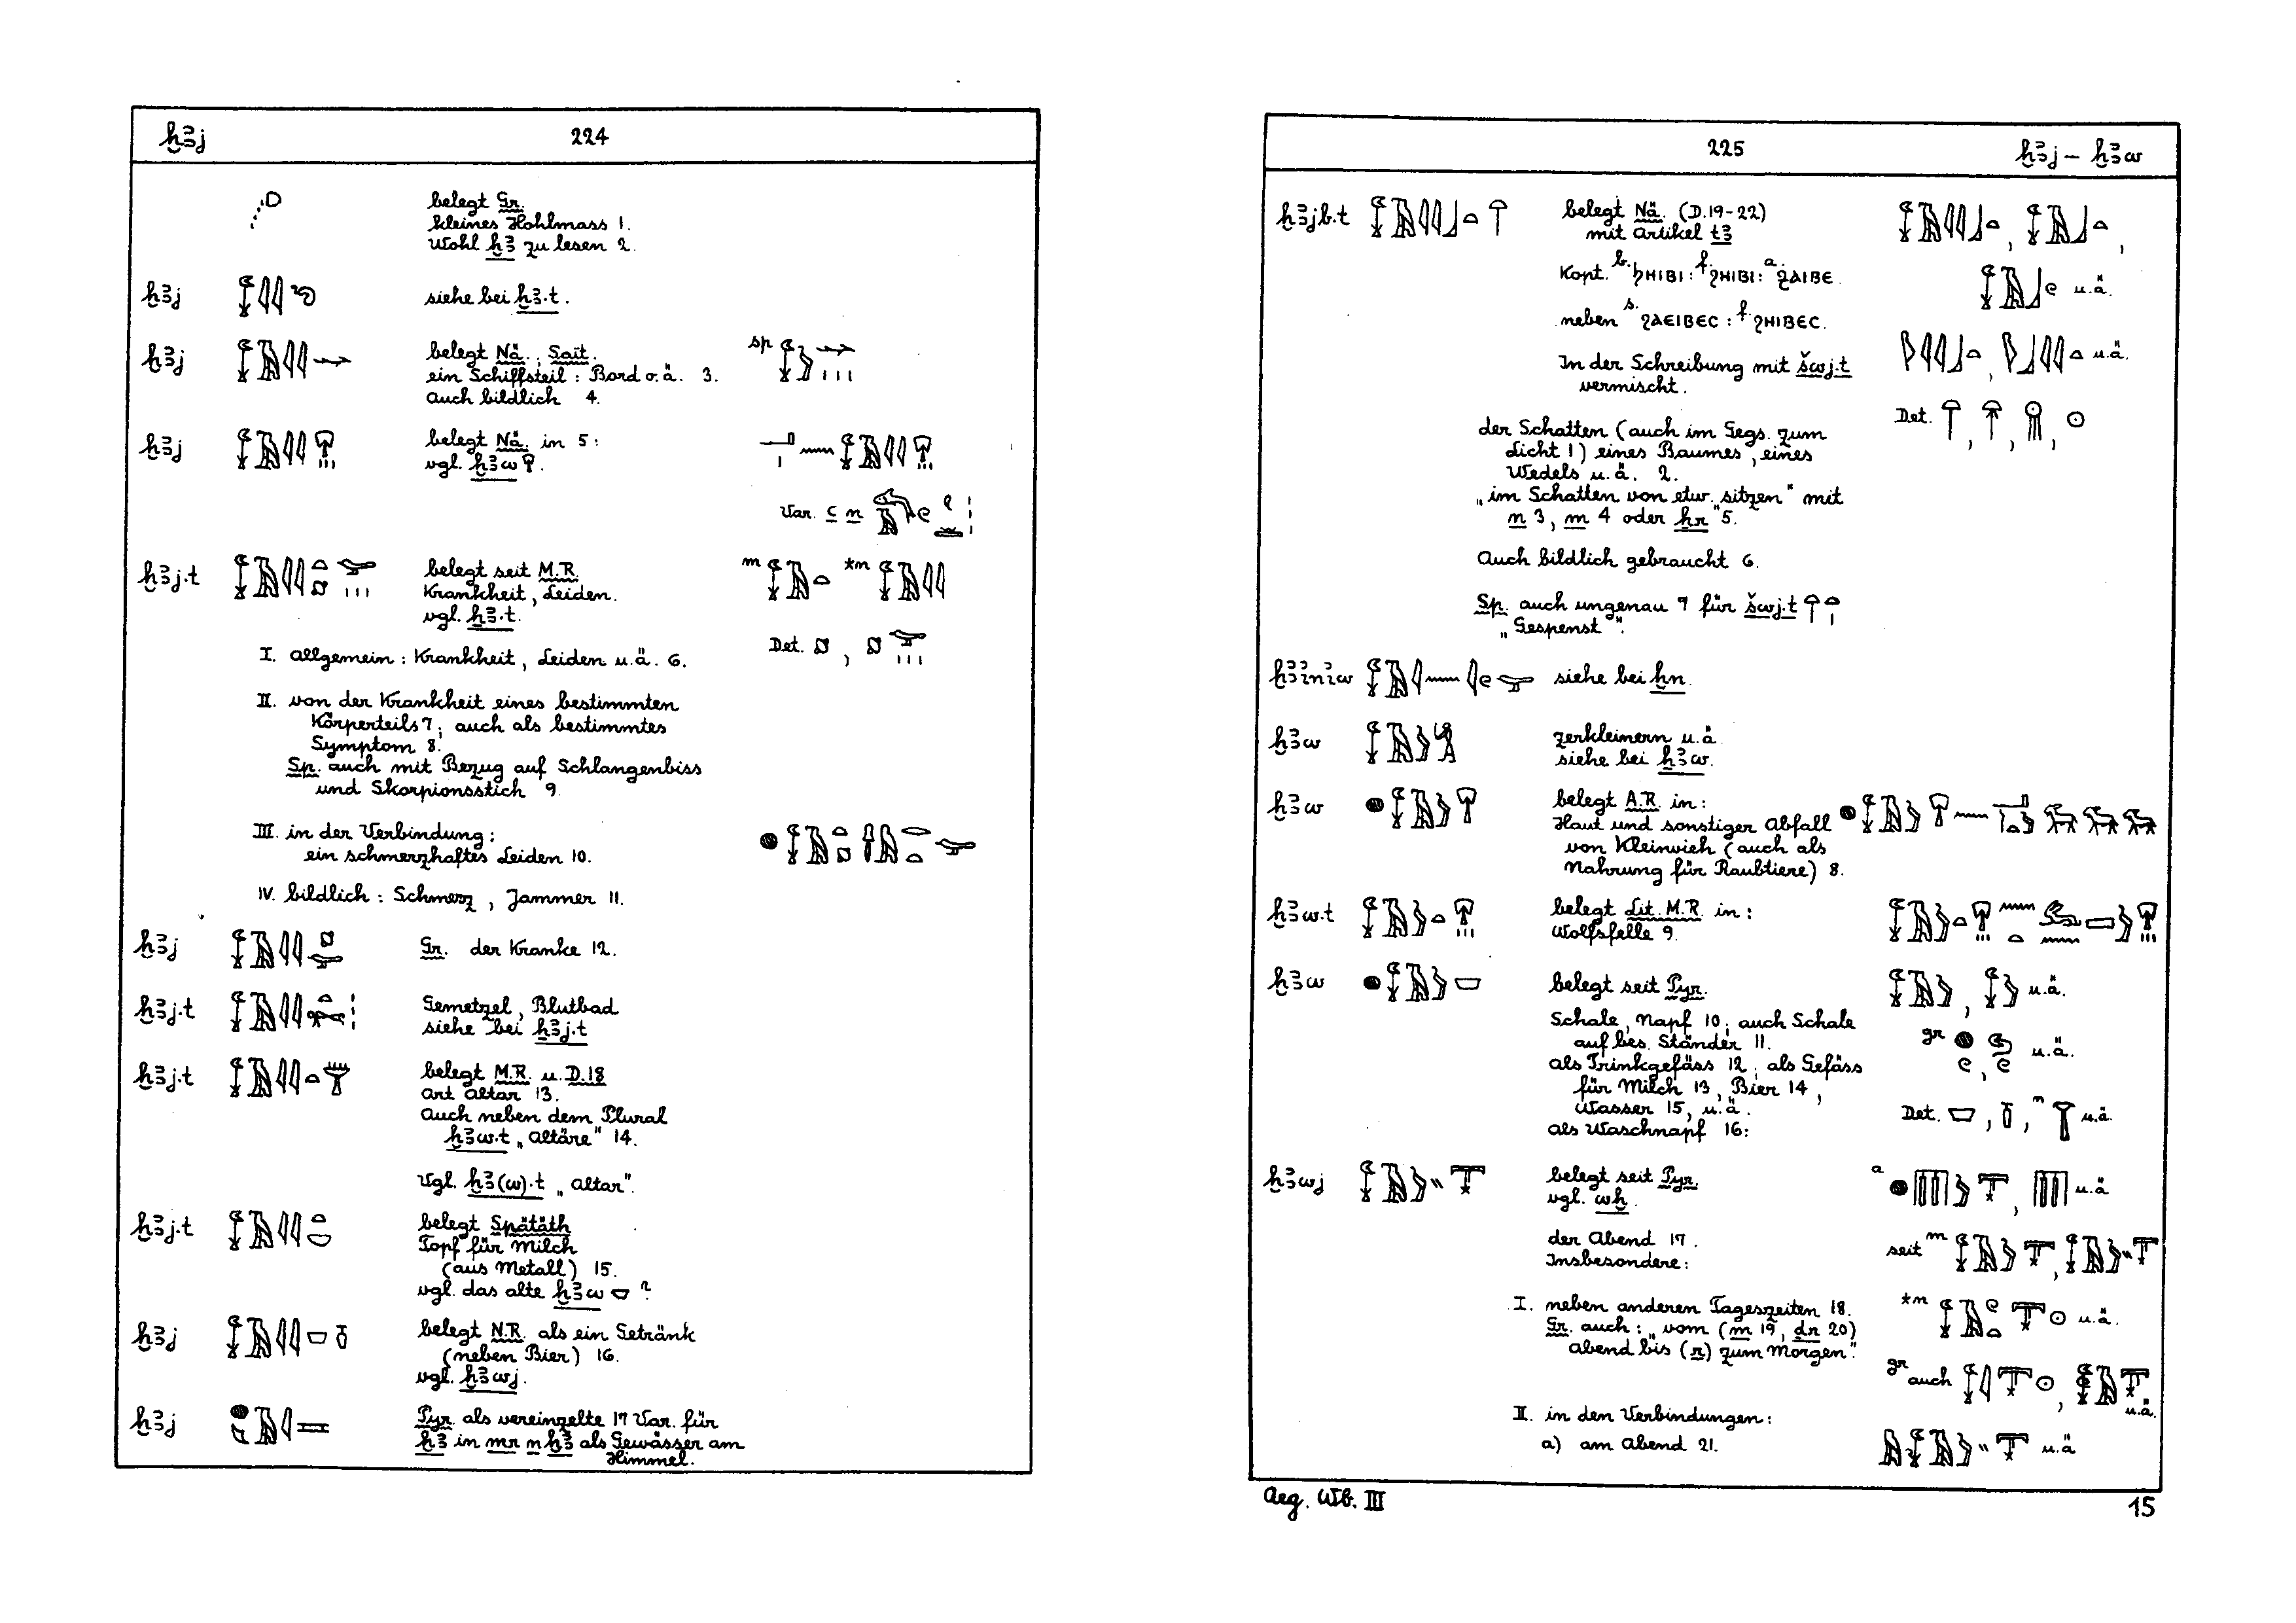 ḫꜣj 224
belegt Gr.
kleines Hohlmass 1.
Wohl ḫꜣ zu lesen 2.
ḫꜣj siehe bei ḫꜣ.t.
ḫꜣj belegt Nä., Sait. sp
ein Schiffsteil: Bord o.ä. 3.
auch bildlich 4.
ḫꜣj belegt Nä. in 5:
vgl. ḫꜣw.
Var. ꜥ n
ḫꜣj.t belegt seit M.R. m *n
Krankheit, Leiden.
vgl. ḫꜣ.t.
Det. ,
I. allgemein: Krankheit, Leiden u.ä. 6.
II. von der Krankheit eines bestimmten
Körperteils 7; auch als bestimmtes
Symptom 8.
Sp. auch mit Bezug auf Schlangenbiss
und Skorpionsstich 9.
III. in der Verbindung:
ein schmerzhaftes Leiden 10.
IV. bildlich: Schmerz, Jammer 11.
ḫꜣj Gr. der Kranke 12.
ḫꜣj.t Gemetzel, Blutbad
siehe bei ẖꜣj.t
ḫꜣj.t belegt M.R. u. D.18
Art Altar 13.
Auch neben dem Plural
ḫꜣw.t „Altäre" 14.
Vgl. ḫꜣ(w).t „Altar".
ḫꜣj.t belegt Spätäth
Topf für Milch
(aus Metall) 15.
vgl. das alte ḫꜣw ?
ḫꜣj belegt N.R. als ein Getränk
(neben Bier) 16.
vgl. ḫꜣwj.
ḫꜣj Pyr. als vereinzelte 17 Var. für
ḫꜣ in mr n ḫꜣ als Gewässer am
Himmel.
225 ḫꜣj – ḫꜣw
ḫꜣjb.t belegt Nä. (D.19-22)
mit Artikel tꜣ
Kopt. b. ϧⲏⲓⲃⲓ: f. ϩⲏⲓⲃⲓ: a. ϩⲁⲓⲃⲉ. u.ä.
neben s. ϩⲁⲉⲓⲃⲉⲥ: f. ϩⲏⲓⲃⲉⲥ.
In der Schreibung mit šwj.t u.ä.
vermischt.
Det. , , ,
der Schatten (auch im Gegs. zum
Licht 1) eines Baumes, eines
Wedels u.ä. 2.
„im Schatten von etw. sitzen" mit
n 3, m 4 oder ẖr 5.
Auch bildlich gebraucht 6.
Sp. auch ungenau 7 für šwj.t
„Gespenst".
ḫꜣỉnỉw siehe bei ḫn.
ḫꜣw zerkleinern u.ä.
siehe bei ẖꜣw.
ḫꜣw belegt A.R. in:
Haut und sonstiger Abfall
von Kleinvieh (auch als
Nahrung für Raubtiere) 8.
ḫꜣw.t belegt Lit. M.R. in:
Wolfsfelle 9.
ḫꜣw belegt seit Pyr. , u.ä.
Schale, Napf 10; auch Schale
auf bes. Ständer 11. gr , u.ä.
als Trinkgefäss 12; als Gefäss
für Milch 13, Bier 14,
Wasser 15, u.ä. Det. , , n u.ä.
als Waschnapf 16:
ḫꜣwj belegt seit Pyr. a , u.ä.
vgl. wḫ.
der Abend 17. seit m ,
Insbesondere:
I. neben anderen Tageszeiten 18. *n u.ä.
Gr. auch: „vom (m 19, dr 20)
Abend bis (r) zum Morgen".
gr auch , u.ä.
II. in den Verbindungen:
a) am Abend 21. u.ä.
Aeg. Wb. III 15